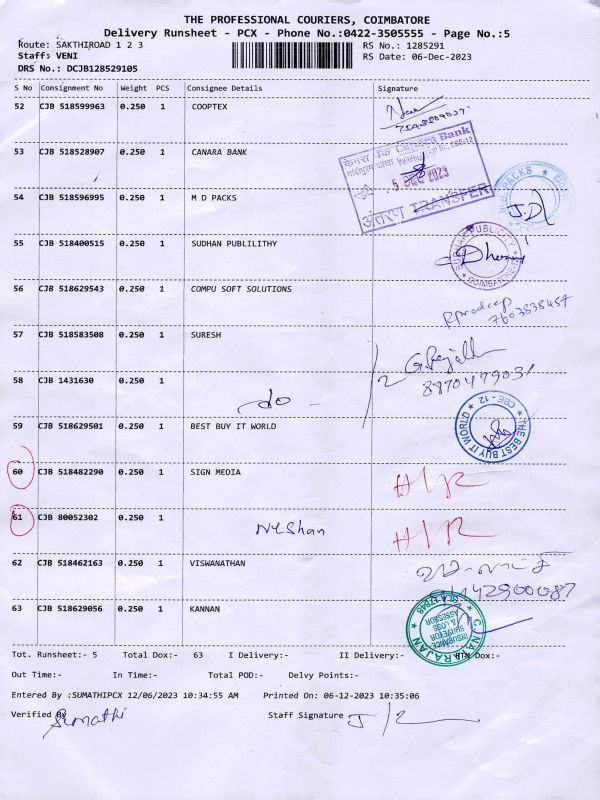 THE PROFESSIONAL COURIERS, COIMBATORE
Delivery Runsheet - PCX - Phone No.:0422-3505555 - Page No.:5
Route: SAKTHIROAD 1 2 3
RS No.: 1285291
Staff: VENI
RS Date: 06-Dec-2023
DRS No.: DCJB128529105
S No Consignment No Weight PCS Consignee Details Signature
52 CJB 518599963 0.250 1 COOPTEX
53 CJB 518528907 0.250 1 CANARA BANK
केनरा बैंक Canara Bank
5 DEC 2023
अंतरण TRANSFER
54 CJB 518596995 0.250 1 M D PACKS
PACKS
J.D
55 CJB 518400515 0.250 1 SUDHAN PUBLILITHY
SUDHAN PUBLICITY
COIMBATORE-12
56 CJB 518629543 0.250 1 COMPU SOFT SOLUTIONS
Rpradeep
7603838457
57 CJB 518583508 0.250 1 SURESH
8870479031
58 CJB 1431630 0.250 1
do -
59 CJB 518629501 0.250 1 BEST BUY IT WORLD
THE BEST BUY IT WORLD CBE - 12
60 CJB 518482290 0.250 1 SIGN MEDIA
61 CJB 80052302 0.250 1
Neshan
62 CJB 518462163 0.250 1 VISWANATHAN
63 CJB 518629056 0.250 1 KANNAN
INSURANCE
SURVEYOR
& LOSS
ASSESSOR
Tot. Runsheet:- 5 Total Dox:- 63 I Delivery:- II Delivery:- RTN Dox:-
Out Time:- In Time:- Total POD:- Delvy Points:-
Entered By :SUMATHIPCX 12/06/2023 10:34:55 AM Printed On: 06-12-2023 10:35:06
Verified By Sumathi Staff Signature